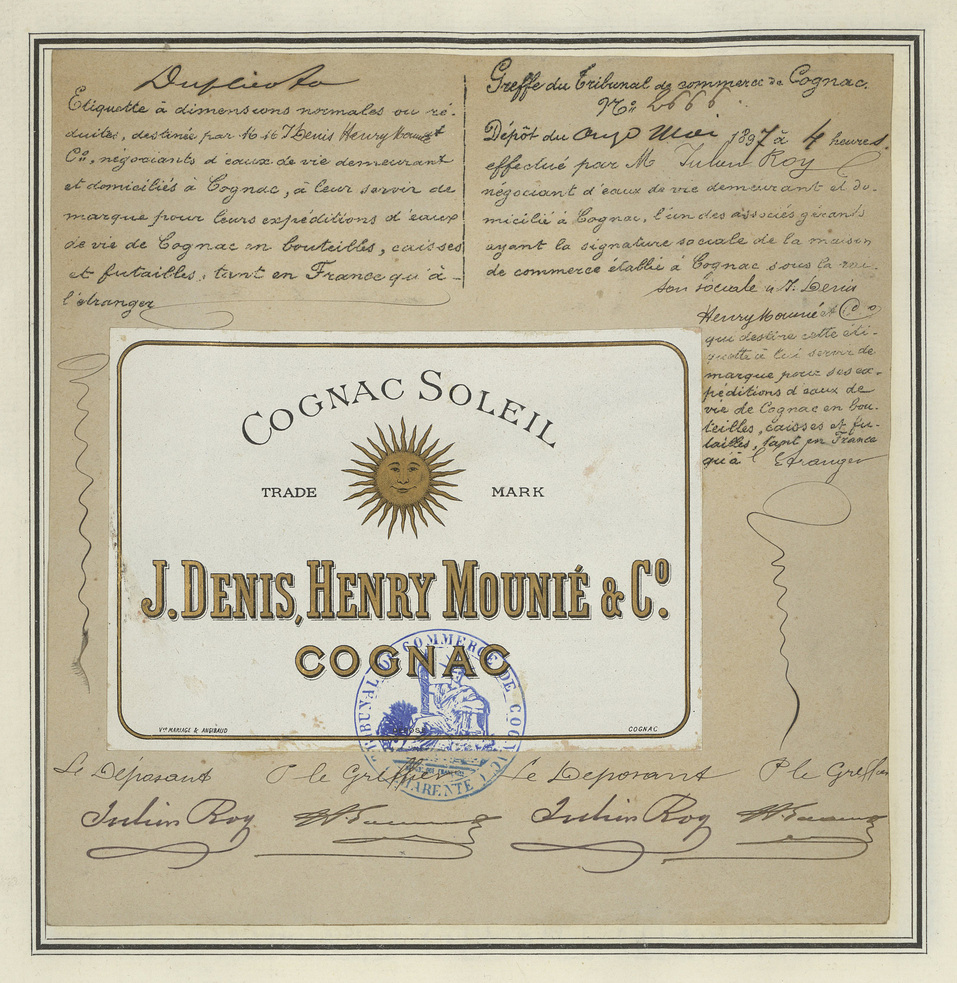 Duplicata
Etiquette à dimensions normales ou ré-
duites, destinée par M et J Denis Henry Mounié et
Cº, négociants d'eaux de vie demeurant
et domiciliés à Cognac, à leur servir de
marque pour leurs expéditions d'eaux
de vie de Cognac en bouteilles, caisses
et futailles, tant en France qu'à-
l'étranger
Greffe du Tribunal de commerce de Cognac.
Nº 2666.
Dépôt du onze Mai 1897 à 4 heures.
effectué par M Julien Roy
négociant d'eaux de vie demeurant et do-
micilié à Cognac, l'un des associés gérants
ayant la signature sociale de la maison
de commerce établie à Cognac sous la rai-
son sociale J. Denis
Henry Mounié & Co
qui destine cette éti-
quette à lui servir de
marque pour ses ex-
péditions d'eaux de
vie de Cognac en bou-
teilles, caisses et fu-
tailles, tant en France
qu'à l'Etranger
COGNAC SOLEIL
TRADE MARK
J. DENIS, HENRY MOUNIÉ & Cº.
COGNAC
TRIBUNAL DE COMMERCE DE COGNAC
CHARENTE
Vve MARIAGE & ANGIBAUD
COGNAC
Le Déposant P le Greffier Le Déposant P le Greffier
Julien Roy Julien Roy